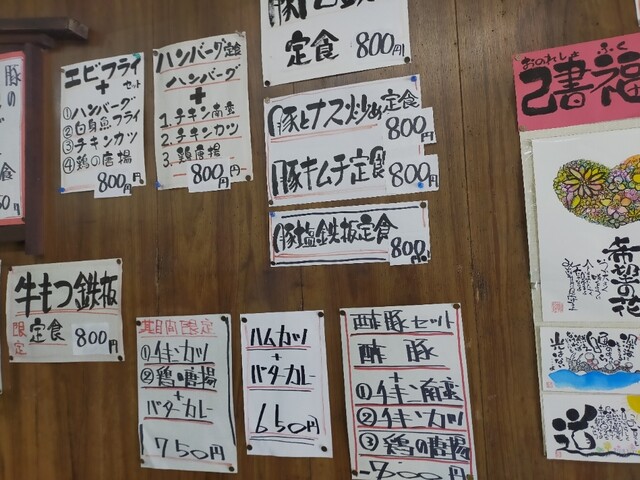 定食 800円
エビフライ
+ セット
①ハンバーグ
②白身魚フライ
③チキンカツ
④鶏の唐揚
800円
ハンバーグ定食
ハンバーグ
+
1.チキン南蛮
2.チキンカツ
3.鶏唐揚
800円
豚とナス炒め定食
800円
豚キムチ定食 800円
豚塩鉄板定食
800円
豚の
牛もつ鉄板
限定
定食 800円
期間限定
①チキンカツ
②鶏唐揚
+
バターカレー
750円
ハムカツ
+
バターカレー
650円
酢豚セット
酢豚
+
①チキン南蛮
②チキンカツ
③鶏の唐揚
800円
おのれしょ ふく
己書福
希望の花
道